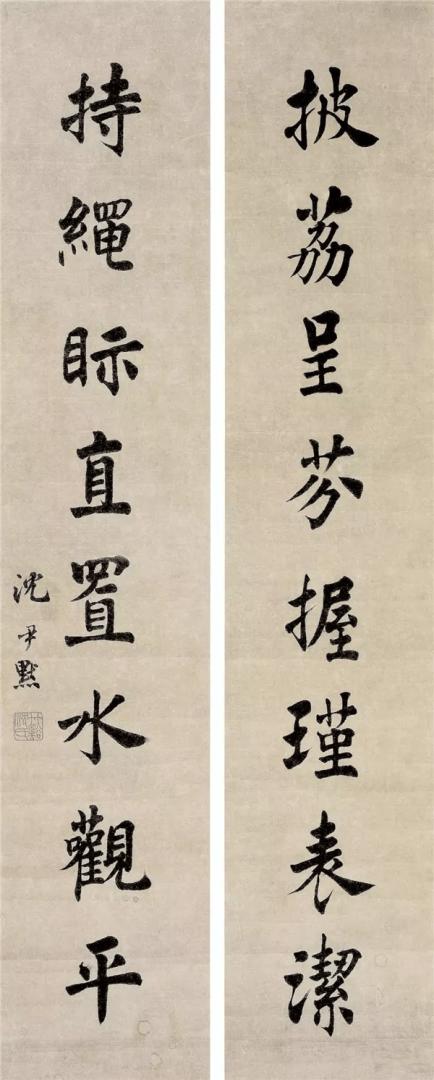 披荔呈芬握瑾表潔
持繩眎直置水觀平
沈尹默